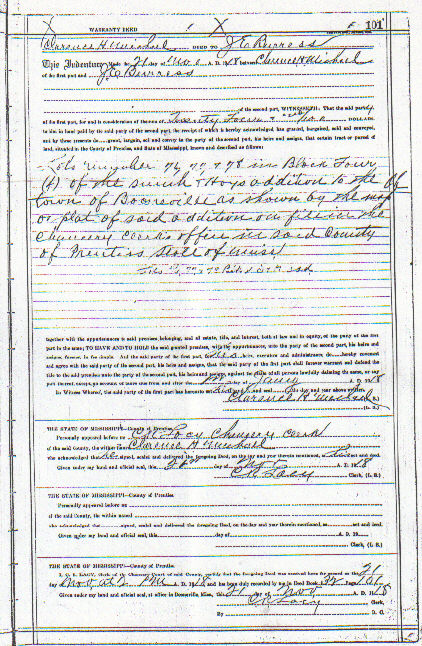 101
WARRANTY DEED
Clarence H. DEED TO J E Burress
This Indenture, Made the 21 day of Nov A. D. 1918 between Clarence H
of the first part and J. E. Burress
of the second part, WITNESSETH: That the said party
of the first part, for and in consideration of the sum of Twenty Four DOLLARS
to him in hand paid by the said party of the second part, the receipt of which is hereby acknowledged has granted, bargained, sold and conveyed,
and by these presents do grant, bargain, sell and convey to the party of the second part, his heirs and assigns, that certain tract or parcel of
land, situated in the County of Prentiss, and State of Mississippi, known and described as follows:
Lots number 76, 77, & 78 in Block Four
(4) of the & Hoys addition to the
town of Booneville as shown by the map
or plat of said addition on file in the
Chancery Clerks office in said County
of Prentiss State of Miss
together with the appurtenances to said premises belonging, and all estate, title, and interest, both at law and in equity, of the party of the first
part in the same; TO HAVE AND TO HOLD the said granted premises, with the appurtenances, unto the party of the second part, his heirs and
assigns, forever, in fee simple. And the said party of the first part, heirs, executors and administrators do hereby covenant
and agree with the said party of the second part, his heirs and assigns, that the said party of the first part shall forever warrant and defend the
title to the said premises unto the party of the second part, his heirs and assigns, against the claims of all persons lawfully claiming the same, or any
part thereof, except on account of taxes due from and after the day of A. D. 191
In Witness Whereof, the said party of the first part has hereunto set hand and seal the day and year above written.
Clarence H (L. S.)
(L. S.)
THE STATE OF MISSISSIPPI—County of Prentiss
Personally appeared before me C R Lacy Chancery Clerk
of the said County, the within named Clarence H
who acknowledged that he signed and delivered the foregoing Deed, on the day and year therein mentioned, as his act and deed.
Given under my hand and official seal, this 21 day of Nov A. D. 1918
C R Lacy
THE STATE OF MISSISSIPPI—County of Prentiss
Personally appeared before me
of the said County, the within named
who acknowledged that signed, sealed and delivered the foregoing Deed, on the day and year therein mentioned, as act and deed.
Given under my hand and official seal, this day of A. D. 19
Clerk, (L. S.)
THE STATE OF MISSISSIPPI—County of Prentiss
I, C. R. LACY, Clerk of the Chancery Court of said County, certify that the foregoing Deed was received for record on the 21
day Nov at 2 PM A. D. 1918 and has been duly recorded by me in Deed Book page 101
Given under my hand and official seal, at office in Booneville, Miss., this 21 day of Nov A. D. 1918
C R Lacy Clerk,
By D. C.